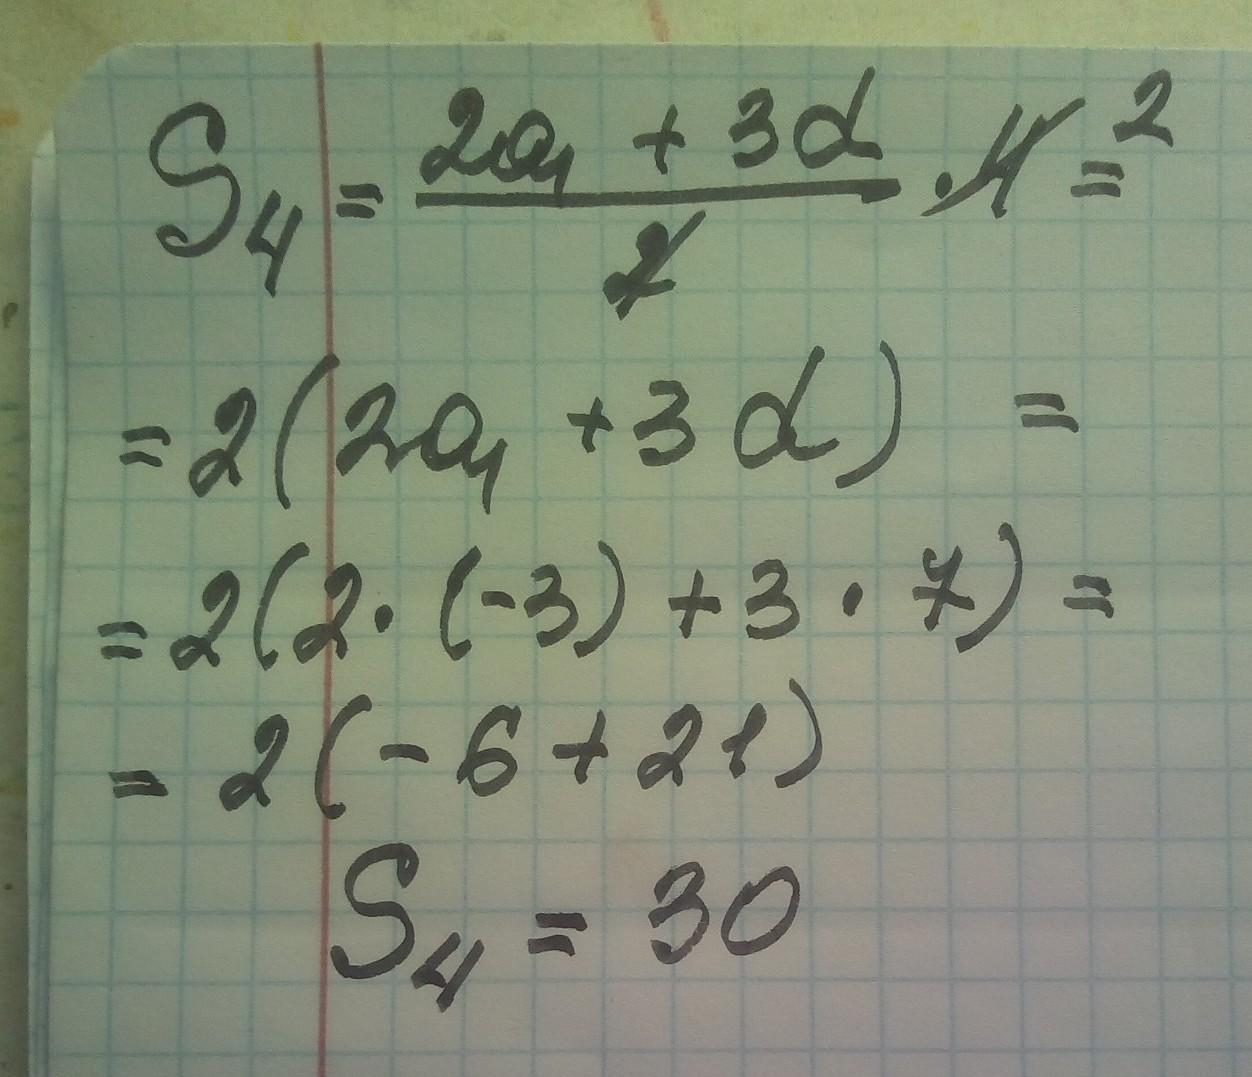 S₄ = (2a₁ + 3d)/2 · 4 ² =
= 2(2a₁ + 3d) =
= 2(2 · (-3) + 3 · 7) =
= 2(-6 + 21)
S₄ = 30